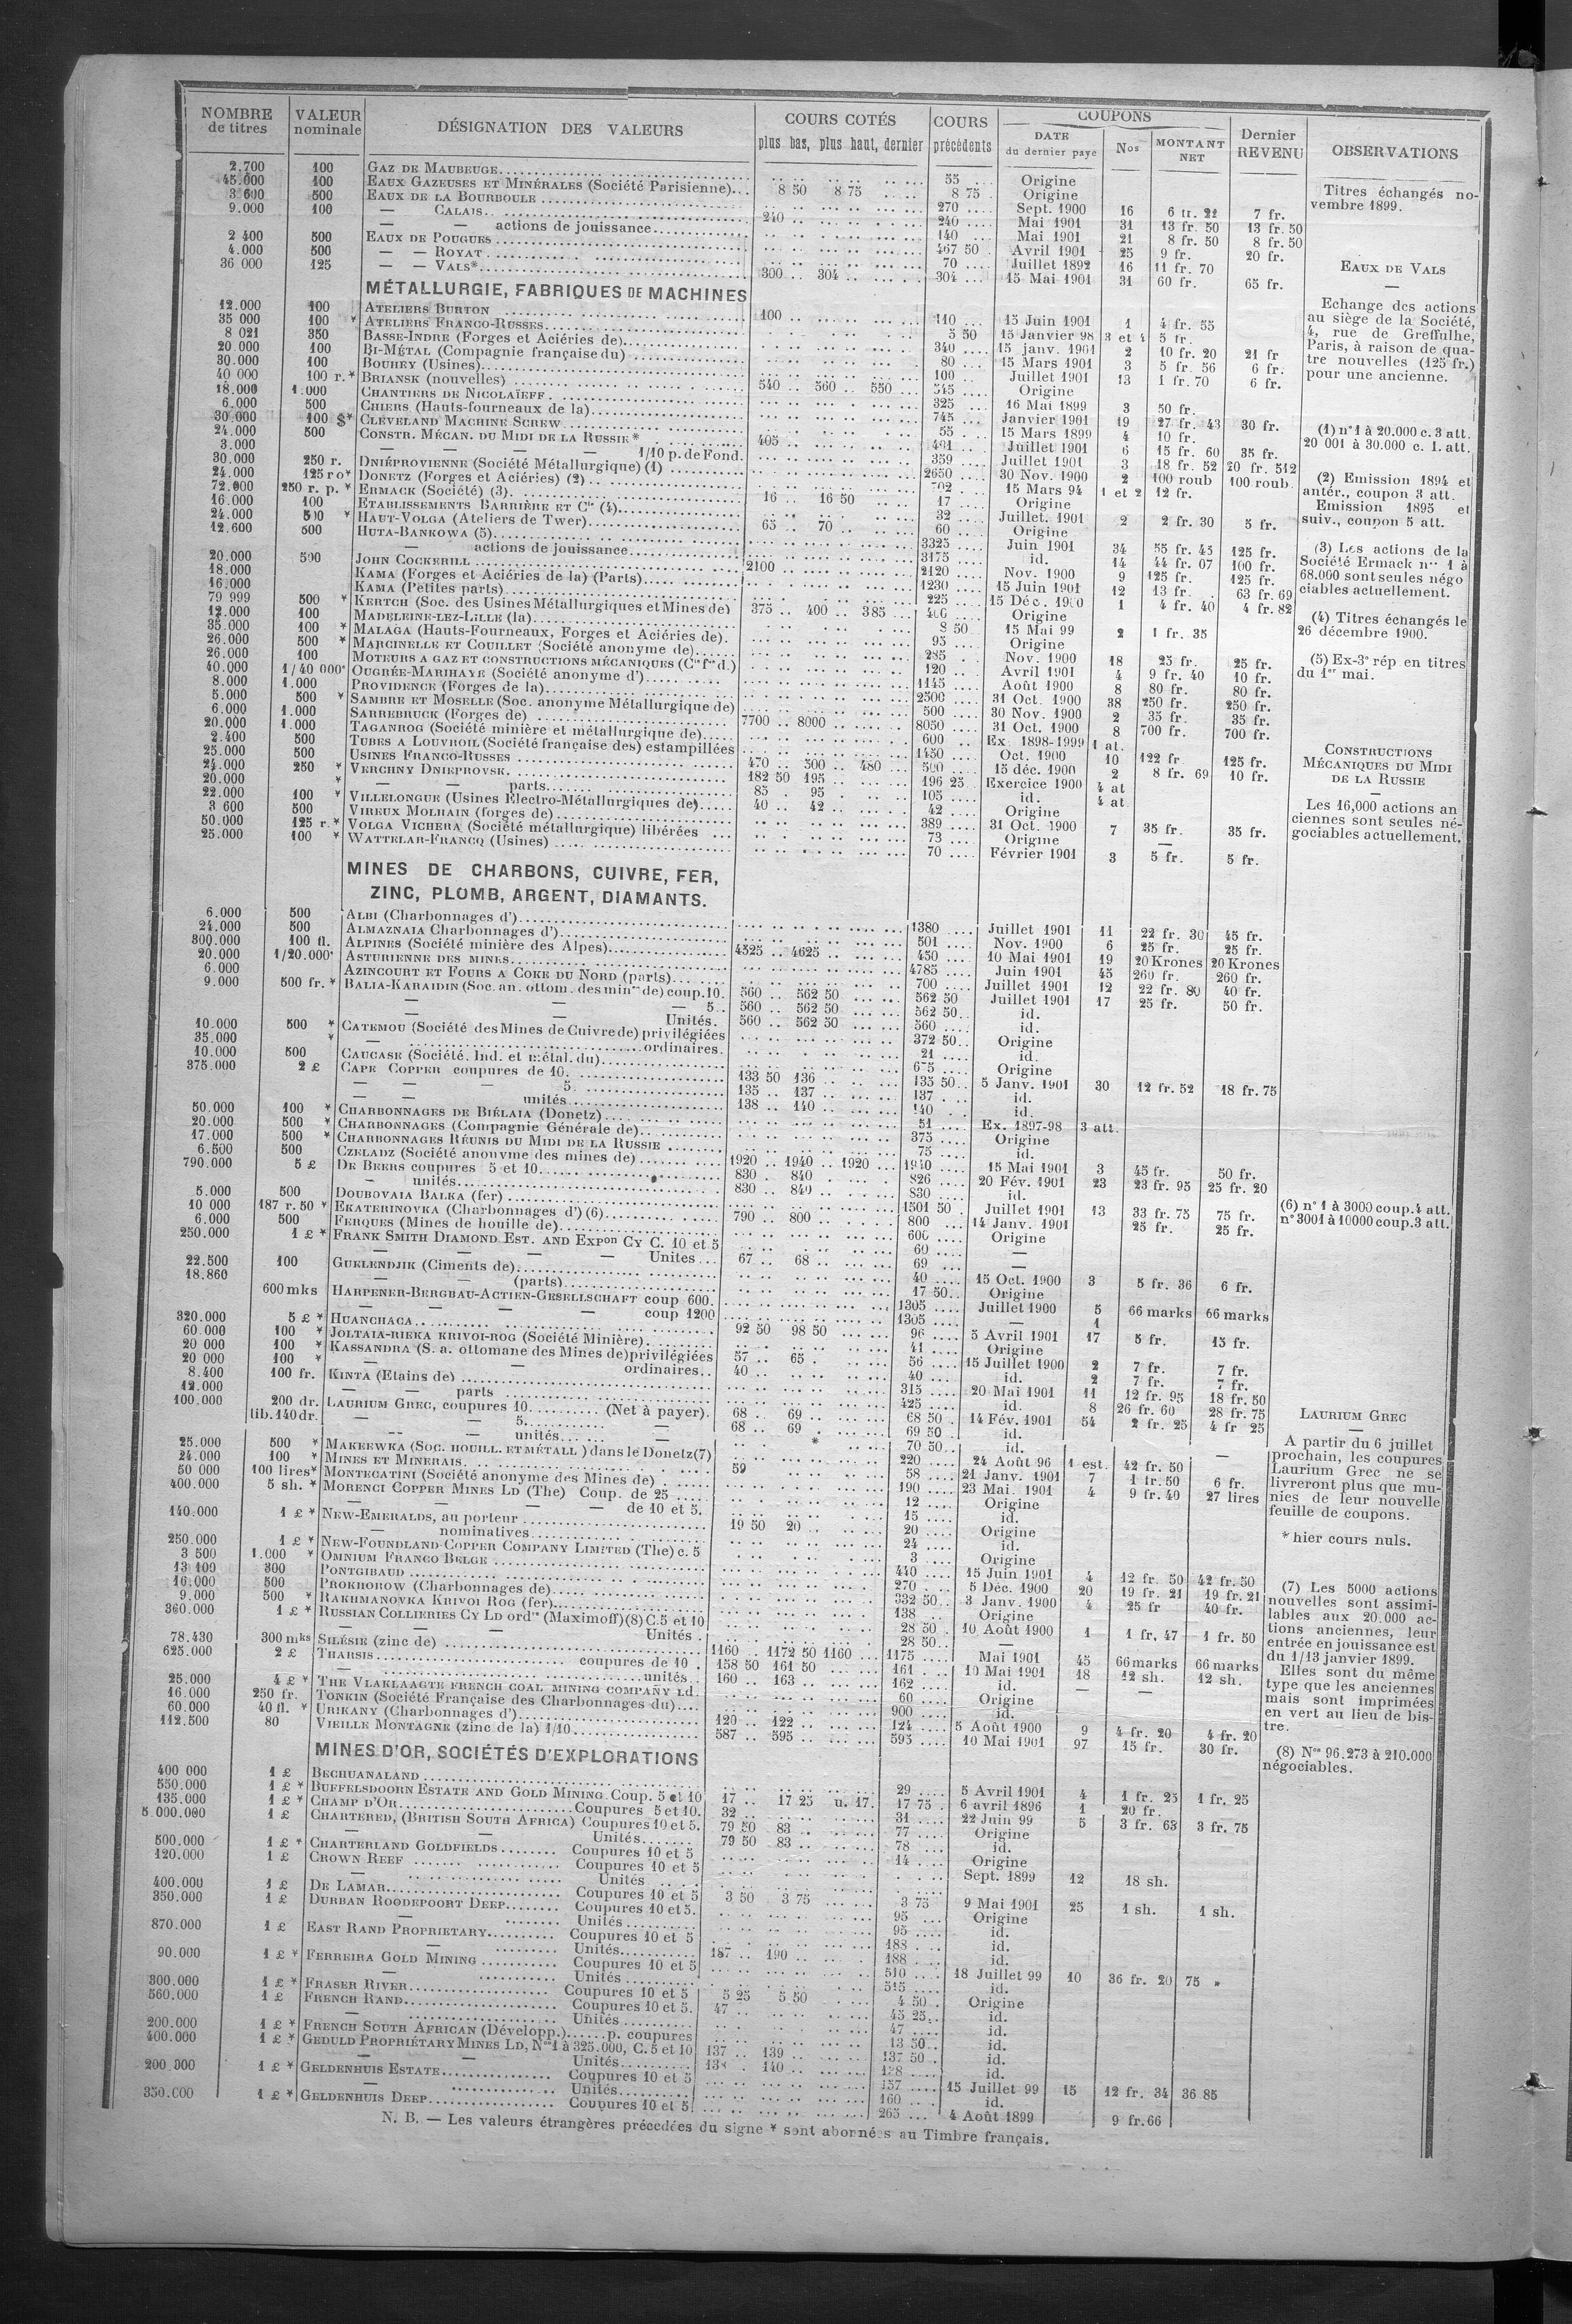 NOMBRE de titres | VALEUR nominale | DÉSIGNATION DES VALEURS | COURS COTÉS plus bas, plus haut, dernier | COURS précédents | COUPONS DATE du dernier payé | Nos | MONTANT NET | Dernier REVENU | OBSERVATIONS
2.700 100 GAZ DE MAUBEUGE 55 Origine
45.000 100 EAUX GAZEUSES ET MINÉRALES (Société Parisienne) 8 50 8 75 8 75 Origine
3 600 500 EAUX DE LA BOURBOULE 270 Sept. 1900 16 6 fr. 22 7 fr.
9.000 100 — CALAIS 240 240 Mai 1901 31 13 fr. 50 13 fr. 50
— — actions de jouissance 140 Mai 1901 21 8 fr. 50 8 fr. 50
2 400 500 EAUX DE POUGUES 467 50 Avril 1901 25 9 fr. 20 fr.
4.000 500 — — ROYAT 70 Juillet 1892 16 11 fr. 70
36 000 125 — — VALS* 300 304 304 15 Mai 1901 31 60 fr. 65 fr.
MÉTALLURGIE, FABRIQUES DE MACHINES
12.000 100 ATELIERS BURTON 100 110 15 Juin 1901 1 4 fr. 55
35 000 100 * ATELIERS FRANCO-RUSSES 5 50 15 Janvier 98 3 et 4 5 fr.
8 021 350 BASSE-INDRE (Forges et Aciéries de) 340 15 janv. 1901 2 10 fr. 20 21 fr
20.000 100 BI-MÉTAL (Compagnie française du) 80 15 Mars 1901 3 5 fr. 56 6 fr.
30.000 100 BOUHEY (Usines) 100 Juillet 1901 13 1 fr. 70 6 fr.
40 000 100 r.* BRIANSK (nouvelles) 540 560 550 545 Origine
18.000 1.000 CHANTIERS DE NICOLAÏEFF 325 16 Mai 1899 3 50 fr.
6.000 500 CHIERS (Hauts-fourneaux de la) 745 Janvier 1901 19 27 fr. 43 30 fr.
30.000 100 $* CLEVELAND MACHINE SCREW 55 15 Mars 1899 4 10 fr.
24.000 500 CONSTR. MÉCAN. DU MIDI DE LA RUSSIE* 405 401 Juillet 1901 6 15 fr. 60 35 fr.
3.000 — — — — 1/10 p. de Fond. 359 Juillet 1901 3 18 fr. 52 20 fr. 512
30.000 250 r. DNIÉPROVIENNE (Société Métallurgique) (1) 2650 30 Nov. 1900 2 100 roub 100 roub
24.000 125 ro* DONETZ (Forges et Aciéries) (2) 702 15 Mars 94 1 et 2 12 fr.
72.000 250 r. p. * ERMACK (Société) (3) 16 16 50 17 Origine
16.000 100 ETABLISSEMENTS BARRIÈRE ET Cie (4) 32 Juillet. 1901 2 2 fr. 30 5 fr.
24.000 500 * HAUT-VOLGA (Ateliers de Twer) 65 70 60 Origine
12.600 500 HUTA-BANKOWA (5) 3325 Juin 1901 34 55 fr. 45 125 fr.
— actions de jouissance 3175 id. 14 44 fr. 07 100 fr.
20.000 500 JOHN COCKERILL 2100 2120 Nov. 1900 9 125 fr. 125 fr.
18.000 KAMA (Forges et Aciéries de la) (Parts) 1230 15 Juin 1901 12 13 fr. 63 fr. 69
16.000 KAMA (Petites parts) 225 15 Déc. 1900 1 4 fr. 40 4 fr. 82
79 999 500 * KERTCH (Soc. des Usines Métallurgiques et Mines de) 375 400 385 400 Origine
12.000 100 MADELEINE-LEZ-LILLE (la) 8 50 15 Mai 99 2 1 fr. 35
35.000 100 * MALAGA (Hauts-Fourneaux, Forges et Aciéries de) 95 Origine
26.000 500 * MARCINELLE ET COUILLET (Société anonyme de) 285 Nov. 1900 18 25 fr. 25 fr.
26.000 100 MOTEURS A GAZ ET CONSTRUCTIONS MÉCANIQUES (Cie fse d.) 120 Avril 1901 4 9 fr. 40 10 fr.
40.000 1/40 000e OUGRÉE-MARIHAYE (Société anonyme d') 1145 Août 1900 8 80 fr. 80 fr.
8.000 1.000 PROVIDENCE (Forges de la) 2500 31 Oct. 1900 38 250 fr. 250 fr.
5.000 500 * SAMBRE ET MOSELLE (Soc. anonyme Métallurgique de) 500 30 Nov. 1900 2 35 fr. 35 fr.
6.000 1.000 SARREBRUCK (Forges de) 7700 8000 8050 31 Oct. 1900 8 700 fr. 700 fr.
20.000 1.000 TAGANROG (Société minière et métallurgique de) 600 Ex 1898-1999 1 at.
2.400 500 TUBES A LOUVROIL (Société française des) estampillées 1450 Oct. 1900 10 122 fr 125 fr.
25.000 500 USINES FRANCO-RUSSES 470 500 480 500 15 déc. 1900 2 8 fr. 69 10 fr.
24.000 250 * VERCHNY DNIEPROVSK. 182 50 195 196 25 Exercice 1900 4 at
20.000 * — — parts 85 95 105 id. 4 at
22.000 100 * VILLELONGUE (Usines Electro-Métallurgiques de) 40 42 42 Origine
3 600 500 VIREUX MOLHAIN (forges de) 389 31 Oct. 1900 7 35 fr. 35 fr.
50.000 125 r.* VOLGA VICHERA (Société métallurgique) libérées 73 Origine —
25.000 100 * WATTELAR-FRANCQ (Usines) 70 Février 1901 3 5 fr. 5 fr.
MINES DE CHARBONS, CUIVRE, FER,
ZINC, PLOMB, ARGENT, DIAMANTS.
6.000 500 ALBI (Charbonnages d') 1380 Juillet 1901 11 22 fr. 30 45 fr.
24.000 500 ALMAZNAIA Charbonnages d') 501 Nov. 1900 6 25 fr. 25 fr.
800.000 100 fl. ALPINES (Société minière des Alpes) 450 10 Mai 1901 19 20 Krones 20 Krones
20.000 1/20.000e ASTURIENNE DES MINES 4525 4625 4785 Juin 1901 45 260 fr. 260 fr.
6.000 AZINCOURT ET FOURS A COKE DU NORD (parts) 700 Juillet 1901 12 22 fr. 80 40 fr.
9.000 500 fr. * BALIA-KARAIDIN (Soc. an. ottom. des mines de) coup. 10. 560 562 50 562 50 Juillet 1901 17 25 fr. 50 fr.
— — — 5. 560 562 50 562 50 id.
— — Unités. 560 562 50 560 id.
10.000 500 * CATEMOU (Société des Mines de Cuivre de) privilégiées 372 50 Origine
35.000 * — ordinaires. 21 id.
10.000 500 CAUCASE (Société. Ind. et métal. du) 675 Origine
375.000 2 £ CAPE COPPER coupures de 10. 133 50 136 135 50 5 Janv. 1901 30 12 fr. 52 18 fr. 75
— — — 5. 135 137 137 id.
— — unités 138 140 140 id.
50.000 100 * CHARBONNAGES DE BIÉLAIA (Donetz) 51 Ex. 1897-98 3 att.
20.000 500 * CHARBONNAGES (Compagnie Générale de) 375 Origine
17.000 500 * CHARBONNAGES RÉUNIS DU MIDI DE LA RUSSIE 75 id.
6.500 500 CZELADZ (Société anonyme des mines de) 1920 1940 1920 1940 15 Mai 1901 3 45 fr. 50 fr.
790.000 5 £ DE BEERS coupures 5 et 10 830 840 826 20 Fév. 1901 23 23 fr. 95 25 fr. 20
— unités 830 840 830 id.
5.000 500 DOUBOVAIA BALKA (fer) 1501 50 Juillet 1901 13 33 fr. 75 75 fr.
10 000 187 r. 50 * EKATERINOVKA (Charbonnages d') (6) 790 800 800 14 Janv. 1901 25 fr. 25 fr.
6.000 500 FERQUES (Mines de houille de) 600 Origine
250.000 1 £ * FRANK SMITH DIAMOND EST. AND EXPon CY C. 10 et 5 60 —
— — — — Unites 67 68 69 —
22.500 100 GUELENDJIK (Ciments de) 40 15 Oct. 1900 3 5 fr. 36 6 fr.
18.860 — — (parts) 17 50 Origine
600 mks HARPENER-BERGBAU-ACTIEN-GESELLSCHAFT coup 600. 1305 Juillet 1900 5 66 marks 66 marks
— — — — coup 1200 1305 — 1
320.000 5 £ * HUANCHACA 92 50 98 50 96 5 Avril 1901 17 5 fr. 15 fr.
60.000 100 * JOLTAIA-RIEKA KRIVOI-ROG (Société Minière) 41 Origine
20 000 100 * KASSANDRA (S. a. ottomane des Mines de) privilégiées 57 65 56 15 Juillet 1900 2 7 fr. 7 fr.
20 000 100 * — — ordinaires 40 40 id. 2 7 fr. 7 fr.
8.400 100 fr. KINTA (Etains de) 315 20 Mai 1901 11 12 fr. 95 18 fr. 50
12.000 — — parts 425 id. 8 26 fr. 60 28 fr. 75
100.000 200 dr. LAURIUM GREC, coupures 10 (Net à payer). 68 69 68 50 14 Fév. 1901 54 2 fr. 25 4 fr 25
lib. 140 dr. — — 5. — 68 69 69 50 id.
— — unités — * 70 50 id.
25.000 500 * MAKEEWKA (SOC. HOUILL. ET MÉTALL ) dans le Donetz (7) 220 24 Août 96 1 est. 42 fr. 50 —
24.000 100 * MINES ET MINERAIS 59 58 21 Janv. 1901 7 1 fr. 50 6 fr.
50 000 100 lires* MONTECATINI (Société anonyme des Mines de) 190 23 Mai. 1901 4 9 fr. 40 27 lires
400.000 5 sh. * MORENCI COPPER MINES LD (The) Coup. de 25 12 Origine
— — — — de 10 et 5. 15 id.
140.000 1 £ * NEW-EMERALDS, au porteur 19 50 20 20 Origine
— nominatives 24 id.
250.000 1 £ * NEW-FOUNDLAND COPPER COMPANY LIMITED (The) c. 5 3 Origine
3 500 1.000 * OMNIUM FRANCO BELGE 440 15 Juin 1901 4 12 fr. 50 42 fr. 50
13 100 300 PONTGIBAUD 270 5 Déc. 1900 20 19 fr. 21 19 fr. 21
16.000 500 PROKHOROW (Charbonnages de) 332 50 3 Janv. 1900 4 25 fr 40 fr.
9.000 500 * RAKHMANOVKA KRIVOI ROG (fer) 138 Origine
360.000 1 £ * RUSSIAN COLLIERIES CY LD ordres (Maximoff) (8) C. 5 et 10 28 50 10 Août 1900 1 1 fr. 47 1 fr. 50
— — — Unités 28 50 —
78.430 300 mks SILÉSIE (zinc de) 1160 1172 50 1160 1175 Mai 1901 45 66 marks 66 marks
625.000 2 £ THARSIS coupures de 10 158 50 161 50 161 10 Mai 1901 18 12 sh. 12 sh.
— unités 160 163 162 id. — —
25.000 4 £ * THE VLAKLAAGTE FRENCH COAL MINING COMPANY LD 60 Origine
16.000 250 fr. TONKIN (Société Française des Charbonnages du) 900 id.
60.000 40 fl. * URIKANY (Charbonnages d') 120 122 124 5 Août 1900 9 4 fr. 20 4 fr. 20
112.500 80 VIEILLE MONTAGNE (zinc de la) 1/10 587 595 595 10 Mai 1901 97 15 fr. 30 fr.
MINES D'OR, SOCIÉTÉS D'EXPLORATIONS
400 000 1 £ BECHUANALAND 29 5 Avril 1901 4 1 fr. 25 1 fr. 25
550.000 1 £ * BUFFELSDOORN ESTATE AND GOLD MINING Coup. 5 et 10 17 17 25 u. 17. 17 75 6 avril 1896 1 20 fr.
135.000 1 £ * CHAMP D'OR Coupures 5 et 10. 32 31 22 Juin 99 5 3 fr. 63 3 fr. 75
5.000.000 1 £ CHARTERED, (BRITISH SOUTH AFRICA) Coupures 10 et 5. 79 50 83 77 Origine
— — Unités 79 50 83 78 id.
500.000 1 £ * CHARTERLAND GOLDFIELDS Coupures 10 et 5 14 Origine
120.000 1 £ CROWN REEF Coupures 10 et 5 Sept. 1899 12 18 sh.
— Unités
400.000 1 £ DE LAMAR Coupures 10 et 5 3 50 3 75 3 75 9 Mai 1901 25 1 sh. 1 sh.
350.000 1 £ DURBAN ROODEPOORT DEEP Coupures 10 et 5. 95 Origine
— Unités 95 id.
870.000 1 £ EAST RAND PROPRIETARY Coupures 10 et 5 188 id.
— Unités 187 190 188 id.
90.000 1 £ * FERREIRA GOLD MINING Coupures 10 et 5 510 18 Juillet 99 10 36 fr. 20 75 »
— Unités 515 id.
300.000 1 £ * FRASER RIVER Coupures 10 et 5 5 25 5 50 4 50 Origine
560.000 1 £ FRENCH RAND Coupures 10 et 5. 47 45 25 id.
— Unités 47 id.
200.000 1 £ * FRENCH SOUTH AFRICAN (Développ.) p. coupures 13 50 id.
400.000 1 £ * GEDULD PROPRIÉTARY MINES LD, Nos 1 à 325.000, C. 5 et 10 137 139 137 50 id.
— — Unités 138 140 138 id.
200 000 1 £ * GELDENHUIS ESTATE Coupures 10 et 5 157 15 Juillet 99 15 12 fr. 34 36 85
— Unités 160 id.
350.000 1 £ * GELDENHUIS DEEP Coupures 10 et 5 265 4 Août 1899 9 fr. 66
N. B. — Les valeurs étrangères précédées du signe * sont abonnées au Timbre français.
Titres échangés no-
vembre 1899.
EAUX DE VALS
—
Echange des actions
au siège de la Société,
4, rue de Greffulhe,
Paris, à raison de qua-
tre nouvelles (125 fr.)
pour une ancienne.
(1) n° 1 à 20.000 c. 3 att.
20 001 à 30.000 c. 1. att.
(2) Emission 1894 et
antér., coupon 3 att.
Emission 1895 et
suiv., coupon 5 att.
(3) Les actions de la
Société Ermack nos 1 à
68.000 sont seules négo
ciables actuellement.
(4) Titres échangés le
26 décembre 1900.
(5) Ex-3e rép en titres
du 1er mai.
CONSTRUCTIONS
MÉCANIQUES DU MIDI
DE LA RUSSIE
—
Les 16,000 actions an
ciennes sont seules né-
gociables actuellement.
(6) n° 1 à 3000 coup. 4 att.
n° 3001 à 10000 coup. 3 att.
LAURIUM GREC
—
A partir du 6 juillet
prochain, les coupures
Laurium Grec ne se
livreront plus que mu-
nies de leur nouvelle
feuille de coupons.
* hier cours nuls.
(7) Les 5000 actions
nouvelles sont assimi-
lables aux 20.000 ac-
tions anciennes, leur
entrée en jouissance est
du 1/13 janvier 1899.
Elles sont du même
type que les anciennes
mais sont imprimées
en vert au lieu de bis-
tre.
(8) Nos 96.273 à 210.000
négociables.